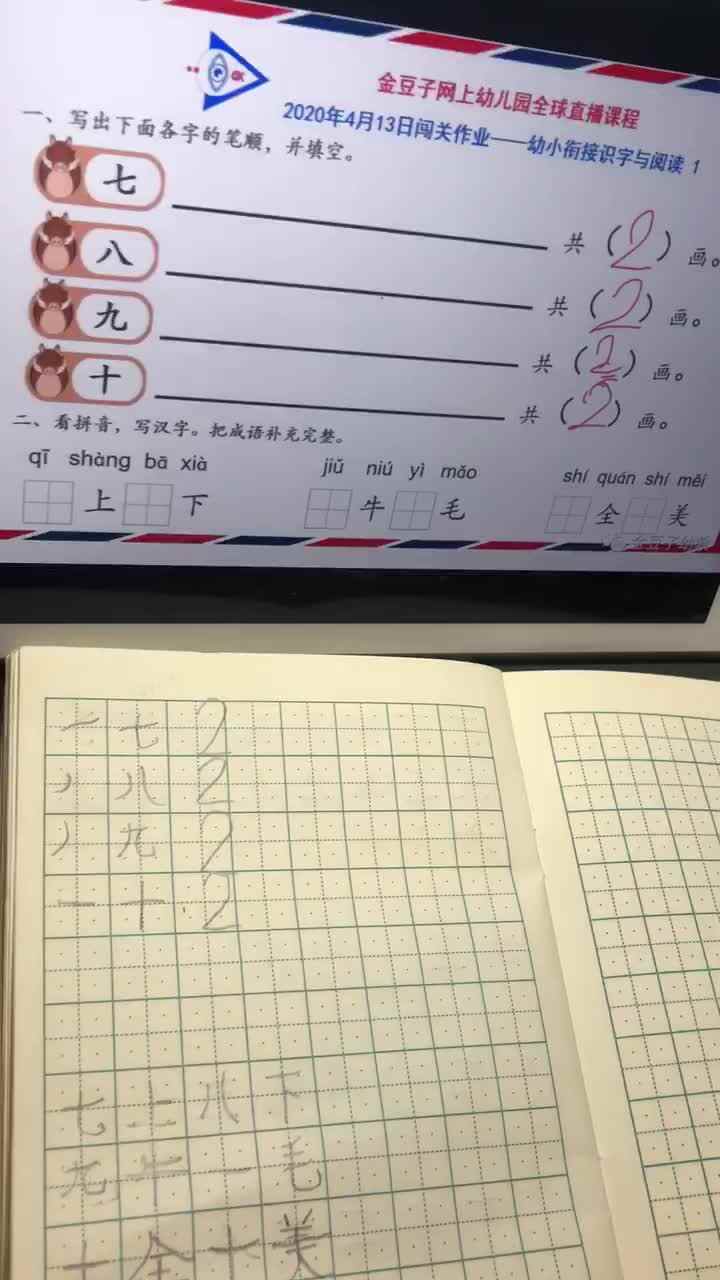 金豆子网上幼儿园全球直播课程
2020年4月13日闯关作业——幼小衔接识字与阅读 1
一、写出下面各字的笔顺，并填空。
七 共（2）画。
八 共（2）画。
九 共（2）画。
十 共（2）画。
二、看拼音，写汉字。把成语补充完整。
qī shàng bā xià jiǔ niú yì máo shí quán shí měi
上 下 牛 毛 全 美
金豆子幼教
一 七 2
丿 八 2
丿 九 2
一 十 2
七 上 八 下
九 牛 一 毛
十 全 十 美